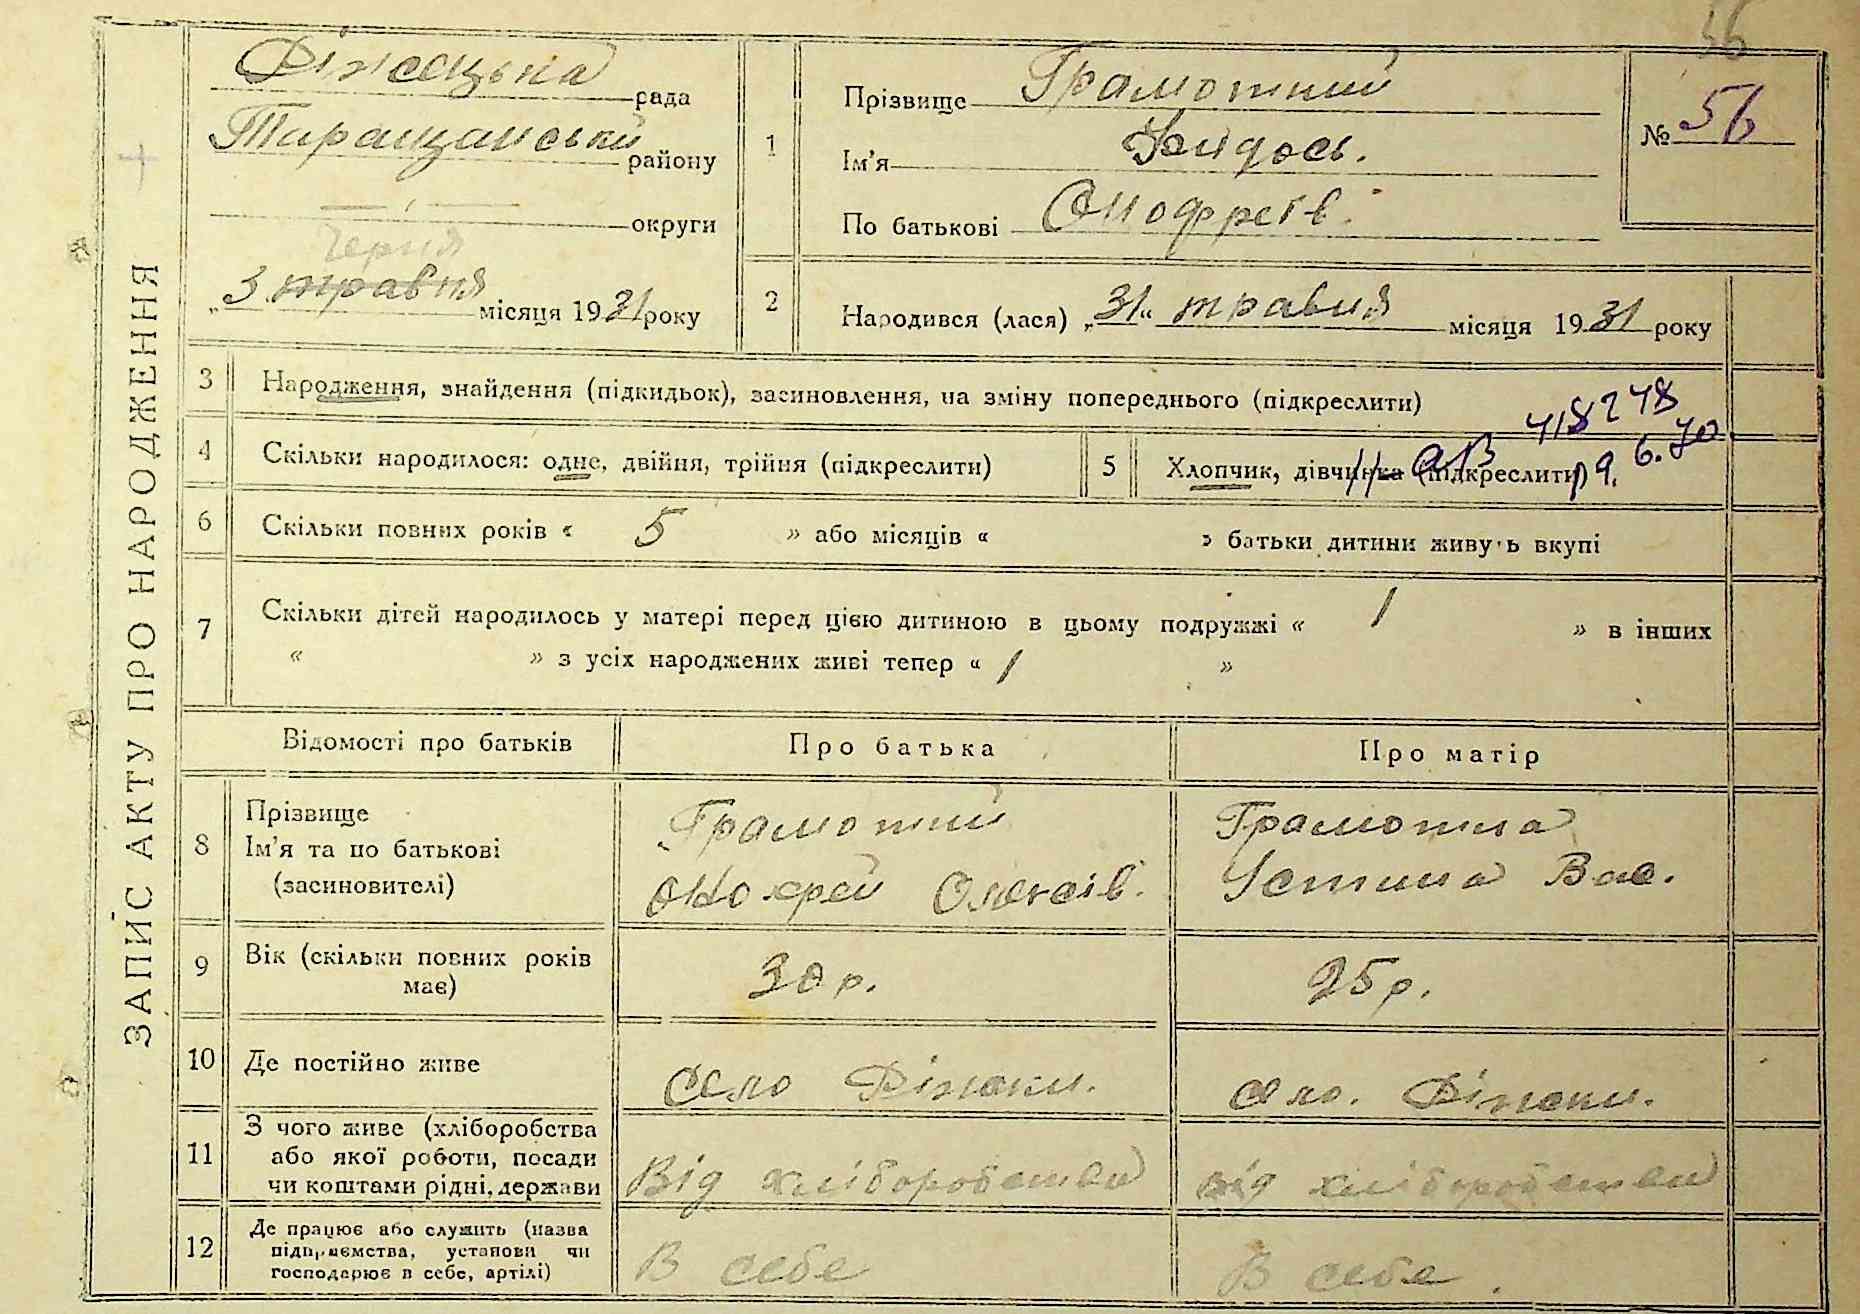 56
ЗАПИС АКТУ ПРО НАРОДЖЕННЯ
Ріжецька рада
Таращанський району
округи
червня
„3 травня місяця 1931 року
1
Прізвище Грамотний
Ім'я
По батькові Онофреїв.
№ 56
2
Народився (лася) „31“ травня місяця 1931 року
3
Народження, знайдення (підкидьок), засиновлення, на зміну попереднього (підкреслити)
4
Скільки народилося: одне, двійня, трійня (підкреслити)
5
Хлопчик, дівчинка (підкреслити)
418248
9. 6. 70
6
Скільки повних років « 5 » або місяців « » батьки дитини живуть вкупі
7
Скільки дітей народилось у матері перед цією дитиною в цьому подружжі « 1 » в інших
« » з усіх народжених живі тепер « 1 »
Відомості про батьків
Про батька
Про матір
8
Прізвище
Ім'я та по батькові
(засиновителі)
Грамотний
Онохрей Олексів.
Грамотна
Устина Вас.
9
Вік (скільки повних років
має)
30 р.
25 р.
10
Де постійно живе
Село Ріжки.
Село. Ріжки.
11
З чого живе (хліборобства
або якої роботи, посади
чи коштами рідні, держави
Від хліборобства
від хліборобства
12
Де працює або служить (назва
підприємства, установи чи
господарює в себе, артілі)
В себе
В себе.